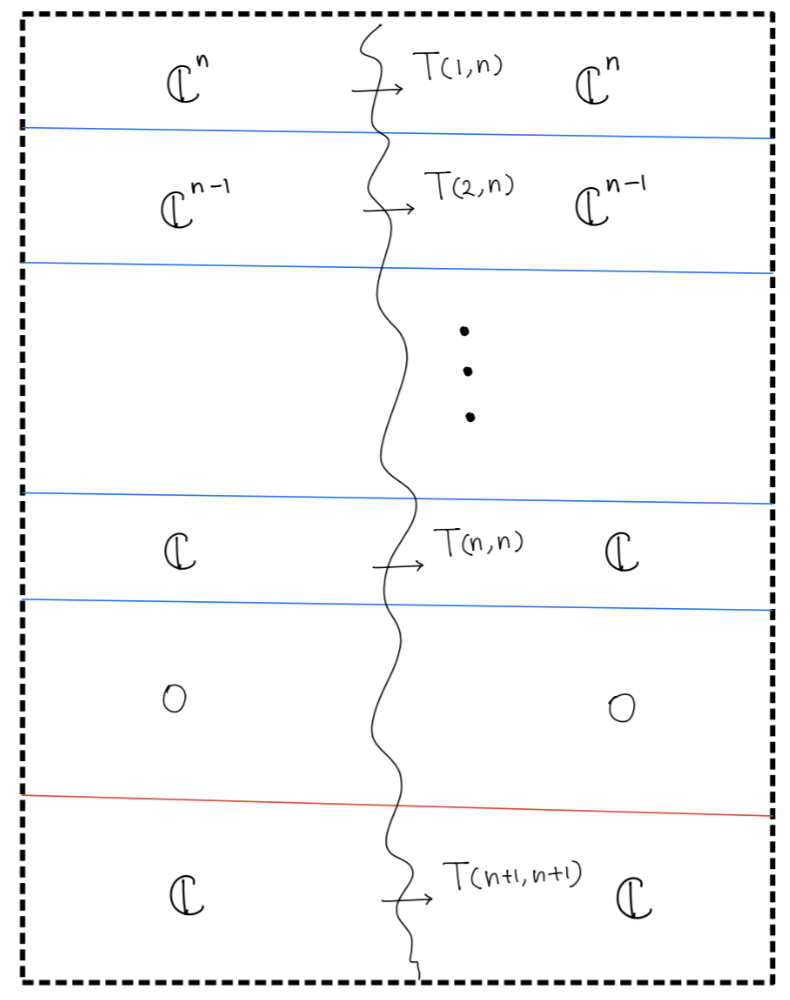 ℂⁿ T(1,n) ℂⁿ
ℂⁿ⁻¹ T(2,n) ℂⁿ⁻¹
⋮
ℂ T(n,n) ℂ
0 0
ℂ T(n+1,n+1) ℂ